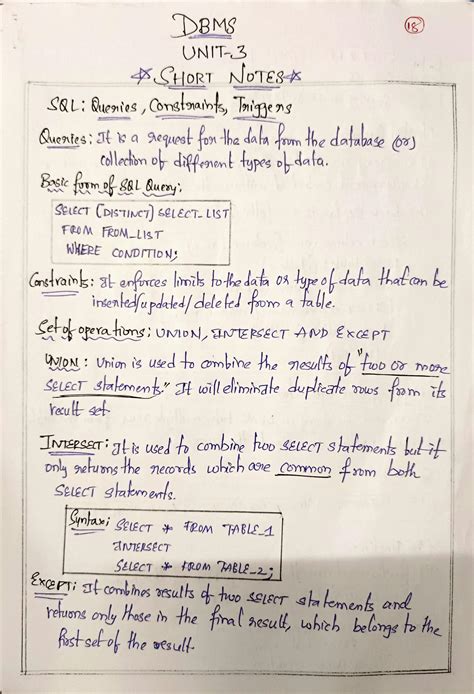 DBMS
18
UNIT-3
SHORT NOTES
SQL: Queries, Constraints, Triggers
Queries: It is a request for the data from the database (or)
collection of different types of data.
Basic form of SQL Query:
SELECT [DISTINCT] SELECT_LIST
FROM FROM_LIST
WHERE CONDITION;
Constraints: It enforces limits to the data or type of data that can be
inserted/updated/deleted from a table.
Set of operations: UNION, INTERSECT AND EXCEPT
UNION: Union is used to combine the results of "two or more
SELECT statements." It will eliminate duplicate rows from its
result set
INTERSECT: It is used to combine two SELECT statements but it
only returns the records which are common from both
SELECT statements.
Syntax: SELECT * FROM TABLE_1
INTERSECT
SELECT * FROM TABLE_2;
EXCEPT: It combines results of two SELECT statements and
returns only those in the final result, which belongs to the
first set of the result.